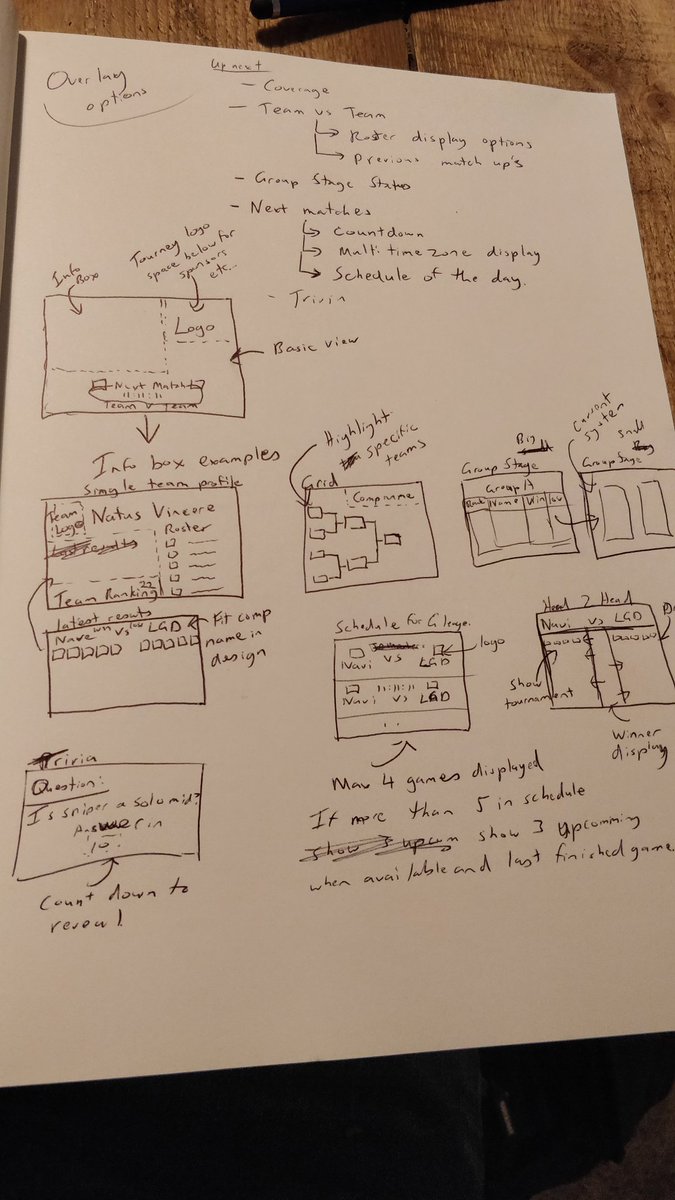 Overlay
options
Up next
- Coverage
- Team vs Team
Roster display options
Previous match up's
- Group Stage Status
- Next matches
Countdown
Multi timezone display
Schedule of the day.
- Trivia
Info
Box
Tourney logo
space below for
sponsors
etc...
Logo
Next Match
Team v Team
Basic view
Info box examples
Single team profile
Team
Logo
Natus Vincere
Last results
Roster
Team Ranking 22
Latest results
Navi win vs low LGD
Fit comp
name in
design
Highlight
specific
teams
Grid
Comp name
Big
Group Stage
Group A
Rank Name Win
Current
system
Small
Group Stage
Schedule for
logo
Navi vs LGD
Navi vs LGD
Max 4 games displayed
If more than 5 in schedule
show 3 upcom show 3 upcomming
when available and last finished game.
Head 2 Head
Navi vs LGD
Show
tournament
Winner
display
Trivia
Question:
Is sniper a solo mid?
Answer in
10
Count down to
reveal